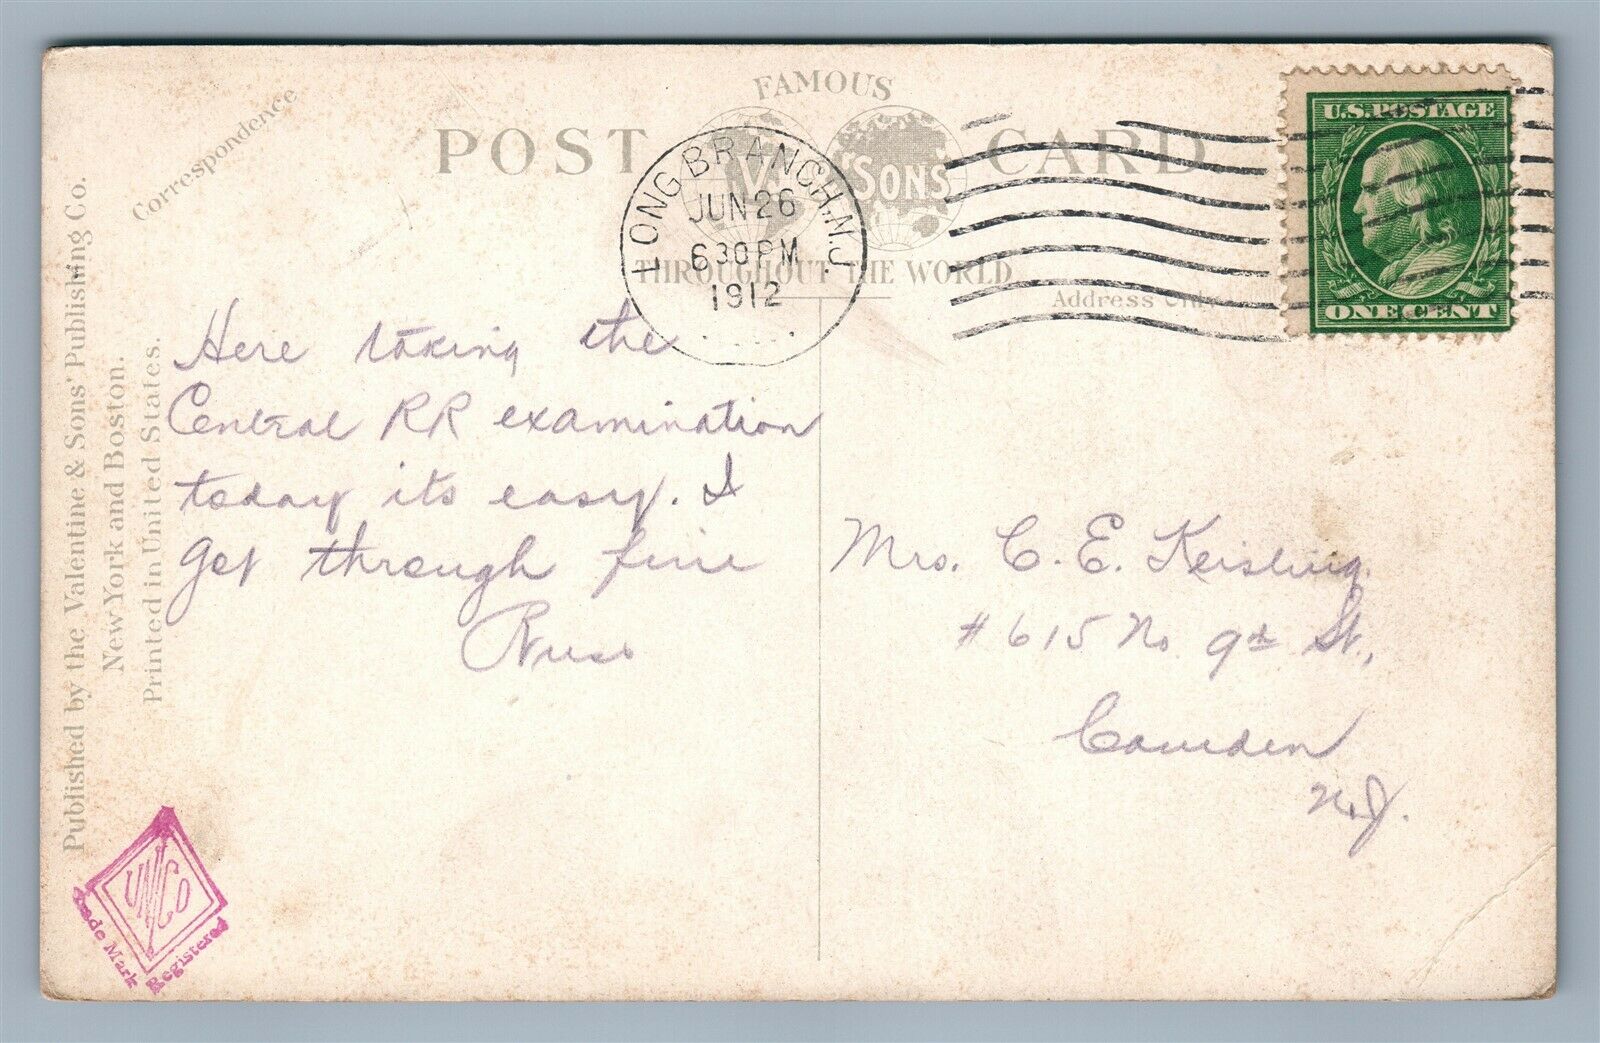 FAMOUS
POST CARD
V. & SONS
THROUGHOUT THE WORLD
Correspondence
Address Only
Published by the Valentine & Sons' Publishing Co.
New York and Boston.
Printed in United States.
LONG BRANCH, N.J.
JUN 26
630 PM
1912
U.S. POSTAGE
ONE CENT
Here taking the
Central RR examination
today its easy. I
got through fine
Russ
Mrs. C. E. Keisling
# 615 No 9th St.,
Camden
N.J.
Trade Mark Registered